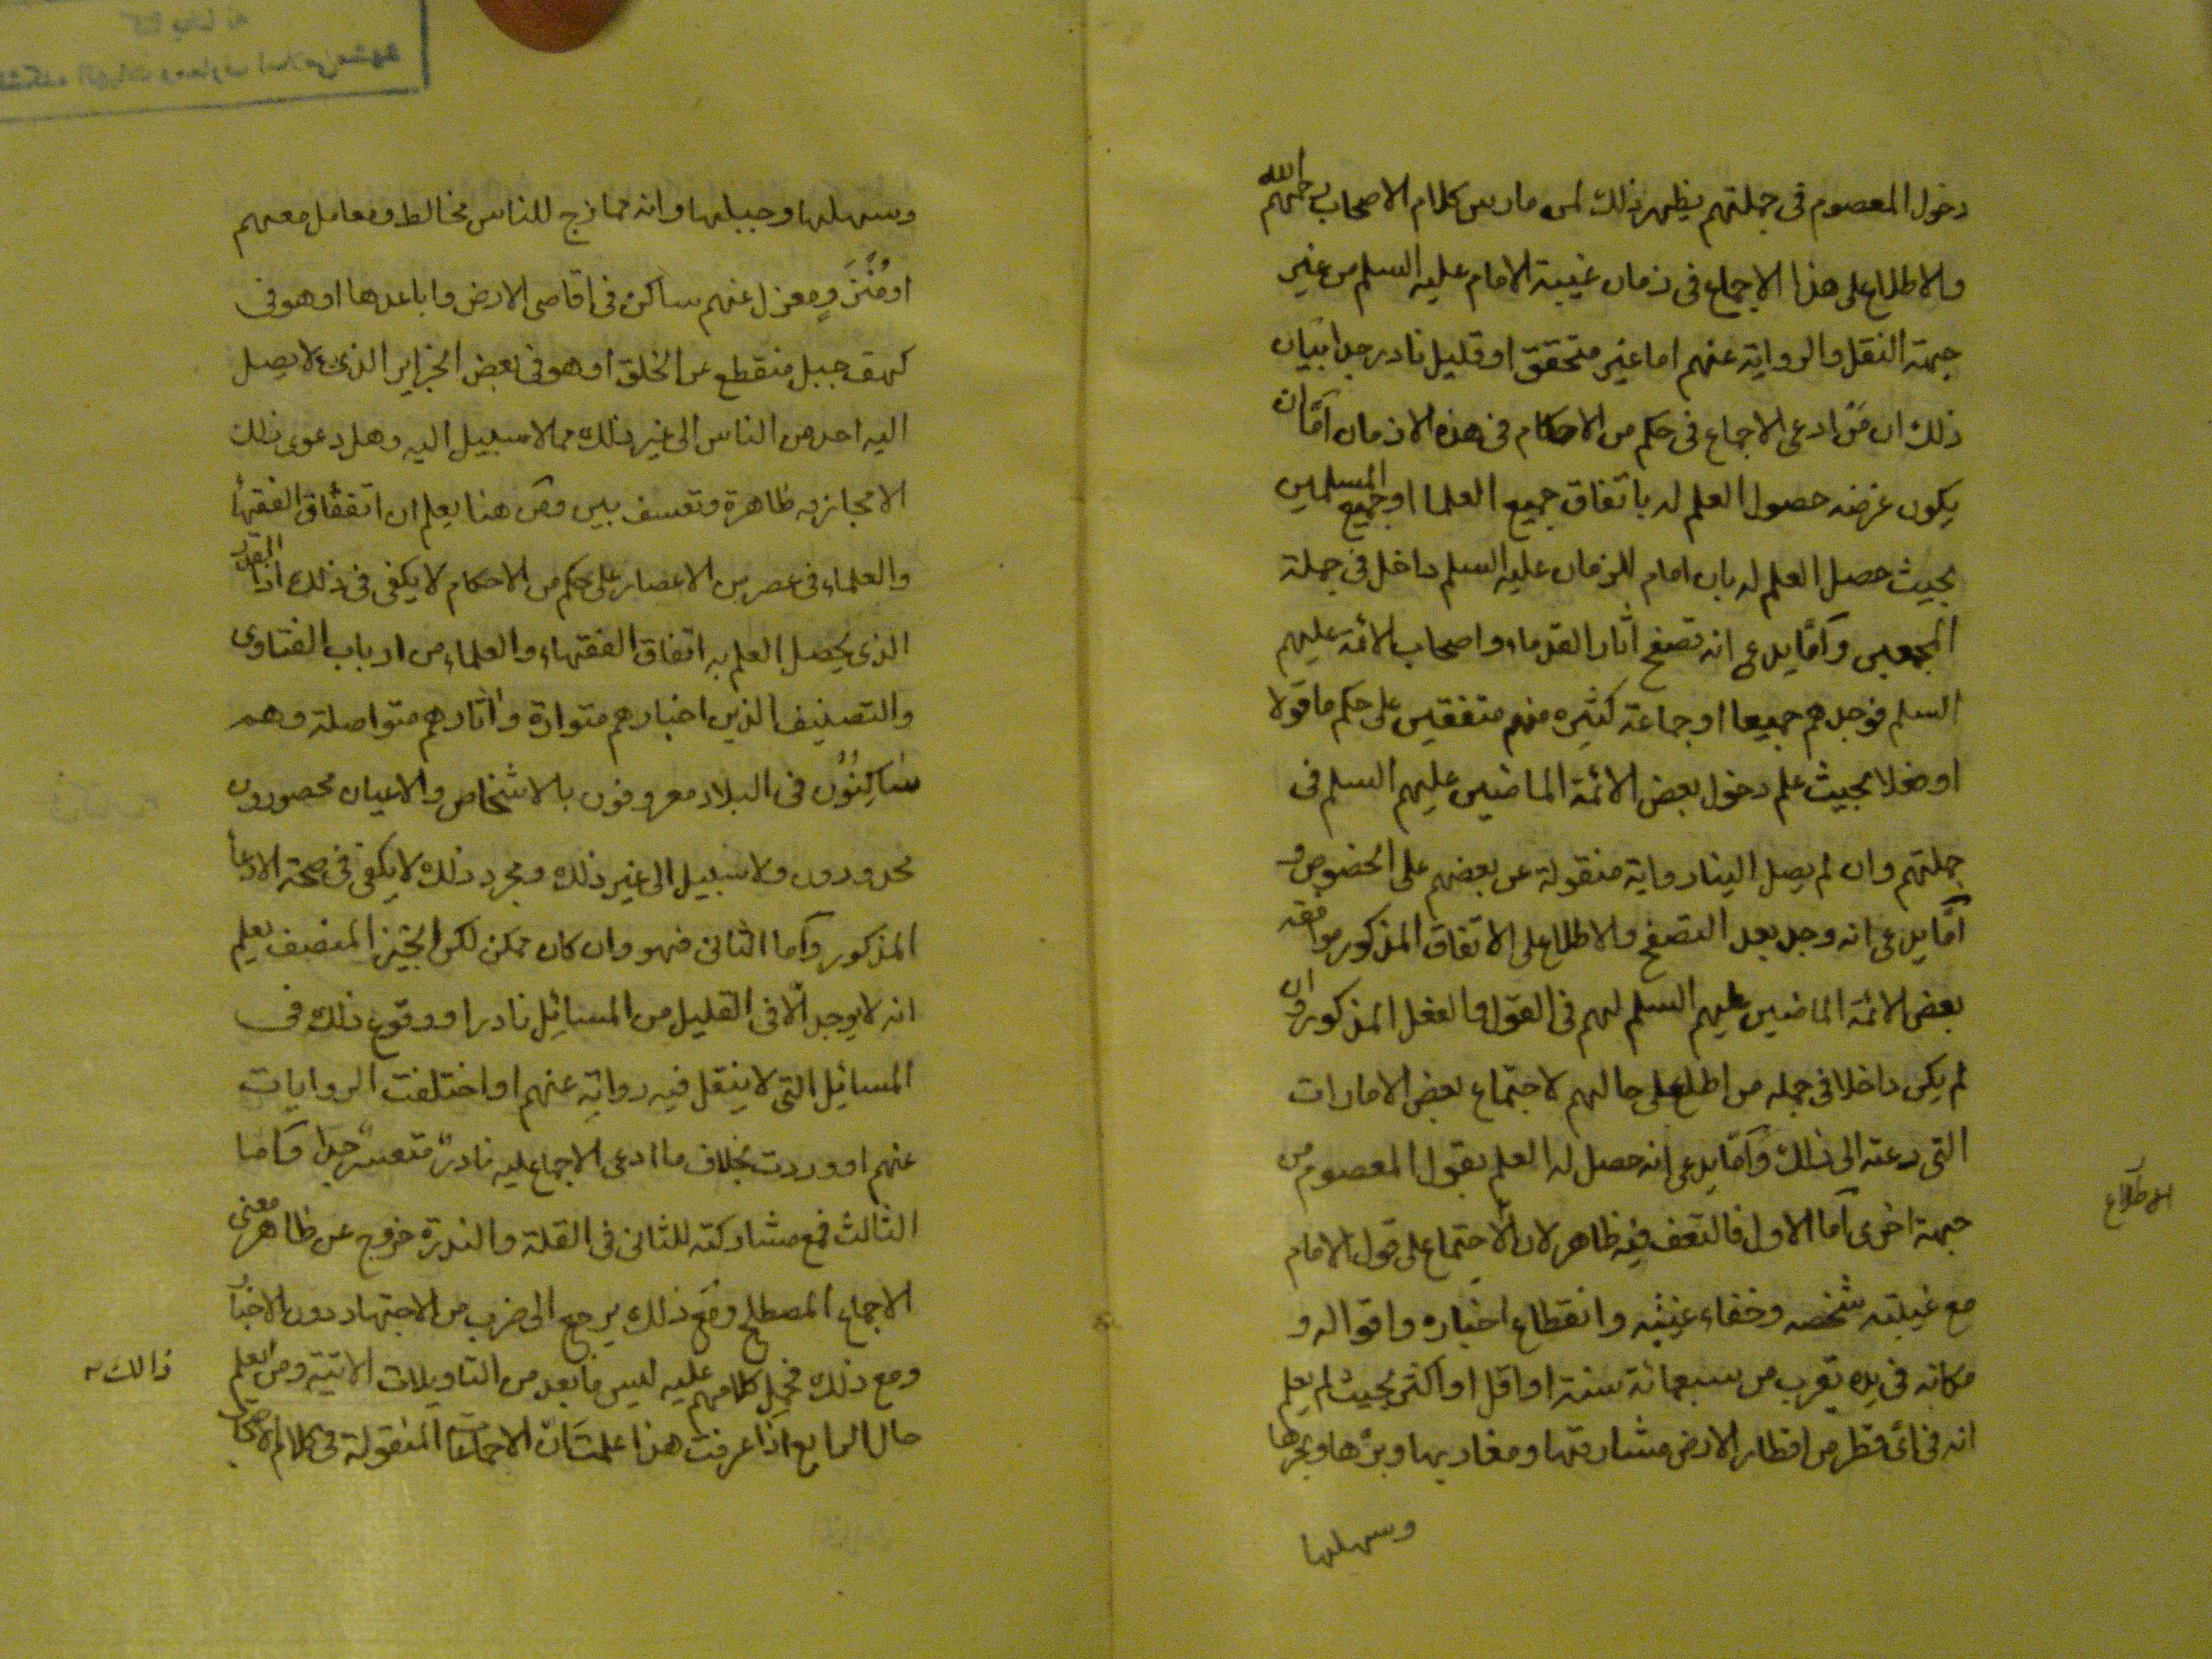 دخول المعصوم فى جملتهم يظهر ذلك لمن مارس كلام الاصحاب رحمهم الله
والاطلاع على هذا الاجماع فى زمان غيبة الامام عليه السلم من غير
جهة النقل والرواية عنهم اما غير متحقق او قليل نادر جدا بيان
ذلك ان من ادعى الاجماع فى حكم من الاحكام فى هذه الازمان اما ان
يكون غرضه حصول العلم له باتفاق جميع العلما او جميع المسلمين
بحيث حصل العلم له بان امام الزمان عليه السلم داخل فى جملة
المجمعين واما يدعى انه تصفح اثار القدماء واصحاب الائمة عليهم
السلم فوجدهم جميعا او جماعة كثيره منهم متفقين على حكم ما قولا
او فعلا بحيث علم دخول بعض الائمة الماضين عليهم السلم فى
جملتهم وان لم يصل الينا رواية منقولة عن بعضهم على الخصوص و
اما يدعى انه وجد بعد التصفح والاطلاع على الاتفاق المذكور موافقه
بعض الائمة الماضين عليهم السلم لهم فى القول والفعل المذكور وان
لم يكن داخلا فى جمله من اطلع على حالهم لاجتماع بعض الامارات
التى دعته الى ذلك واما يدعى انه حصل له العلم بقول المعصوم من
جهة اخرى اما الاول فالتعف فيه ظاهر لان الاجتماع على قول الامام
الاطلاع
مع غيبته شخصه وخفاء عينه وانقطاع اخباره واقواله و
مكانه فى مده تقرب من سبعمائة سنة او اقل او اكثر بحيث لم يعلم
انه فى اى قطر من اقطار الارض مشارقها ومغاربها وبرها وبحرها
وسهلها
وسهلها وجبلها وانه ممازج للناس مخالط ومعامل معهم
او منزو ومعزل عنهم ساكن فى اقاصى الارض واباعدها او هو فى
كهف جبل منقطع عن الخلق او هو فى بعض الجزاير الذى لا يصل
اليه احد من الناس الى غير ذلك مما لا سبيل اليه وهل دعوى ذلك
الا مجازفه ظاهرة وتعسف بين ومن هنا يعلم ان اتفاق الفقها
والعلماء فى عصر من الاعصار على حكم من الاحكام لا يكفى فى ذلك اذا القدر
الذى يحصل العلم به اتفاق الفقهاء والعلماء من ارباب الفتاوى
والتصنيف الذين اخبارهم متوارة واثارهم متواصلة وهم
ساكنون فى البلاد معروفون بالاشخاص والاعيان محصورون
محدودون ولا سبيل الى غير ذلك ومجرد ذلك لا يكفى فى صحة الادعا
المذكور واما الثانى فهو وان كان ممكن لكن الخبير المنصف يعلم
انه لا يوجد الا فى القليل من المسائل نادرا ووقوع ذلك فى
المسائل التى لا ينقل فيه رواية عنهم او اختلفت الروايات
عنهم او وردت بخلاف ما ادعى الاجماع عليه نادر متعسر جدا واما
الثالث فمع مشاركته للثانى فى القلة والندرة خروج عن ظاهر معنى
الاجماع المصطلح ومع ذلك يرجع الى ضرب من الاجتهاد دون الاخبار
ومع ذلك فحمل كلامهم عليه ليس بابعد من التاويلات الاتية ومن يعلم
ذالك
حال الرابع اذا عرفت هذا علمت ان الاجماعات المنقولة فى كلام الاصحاب